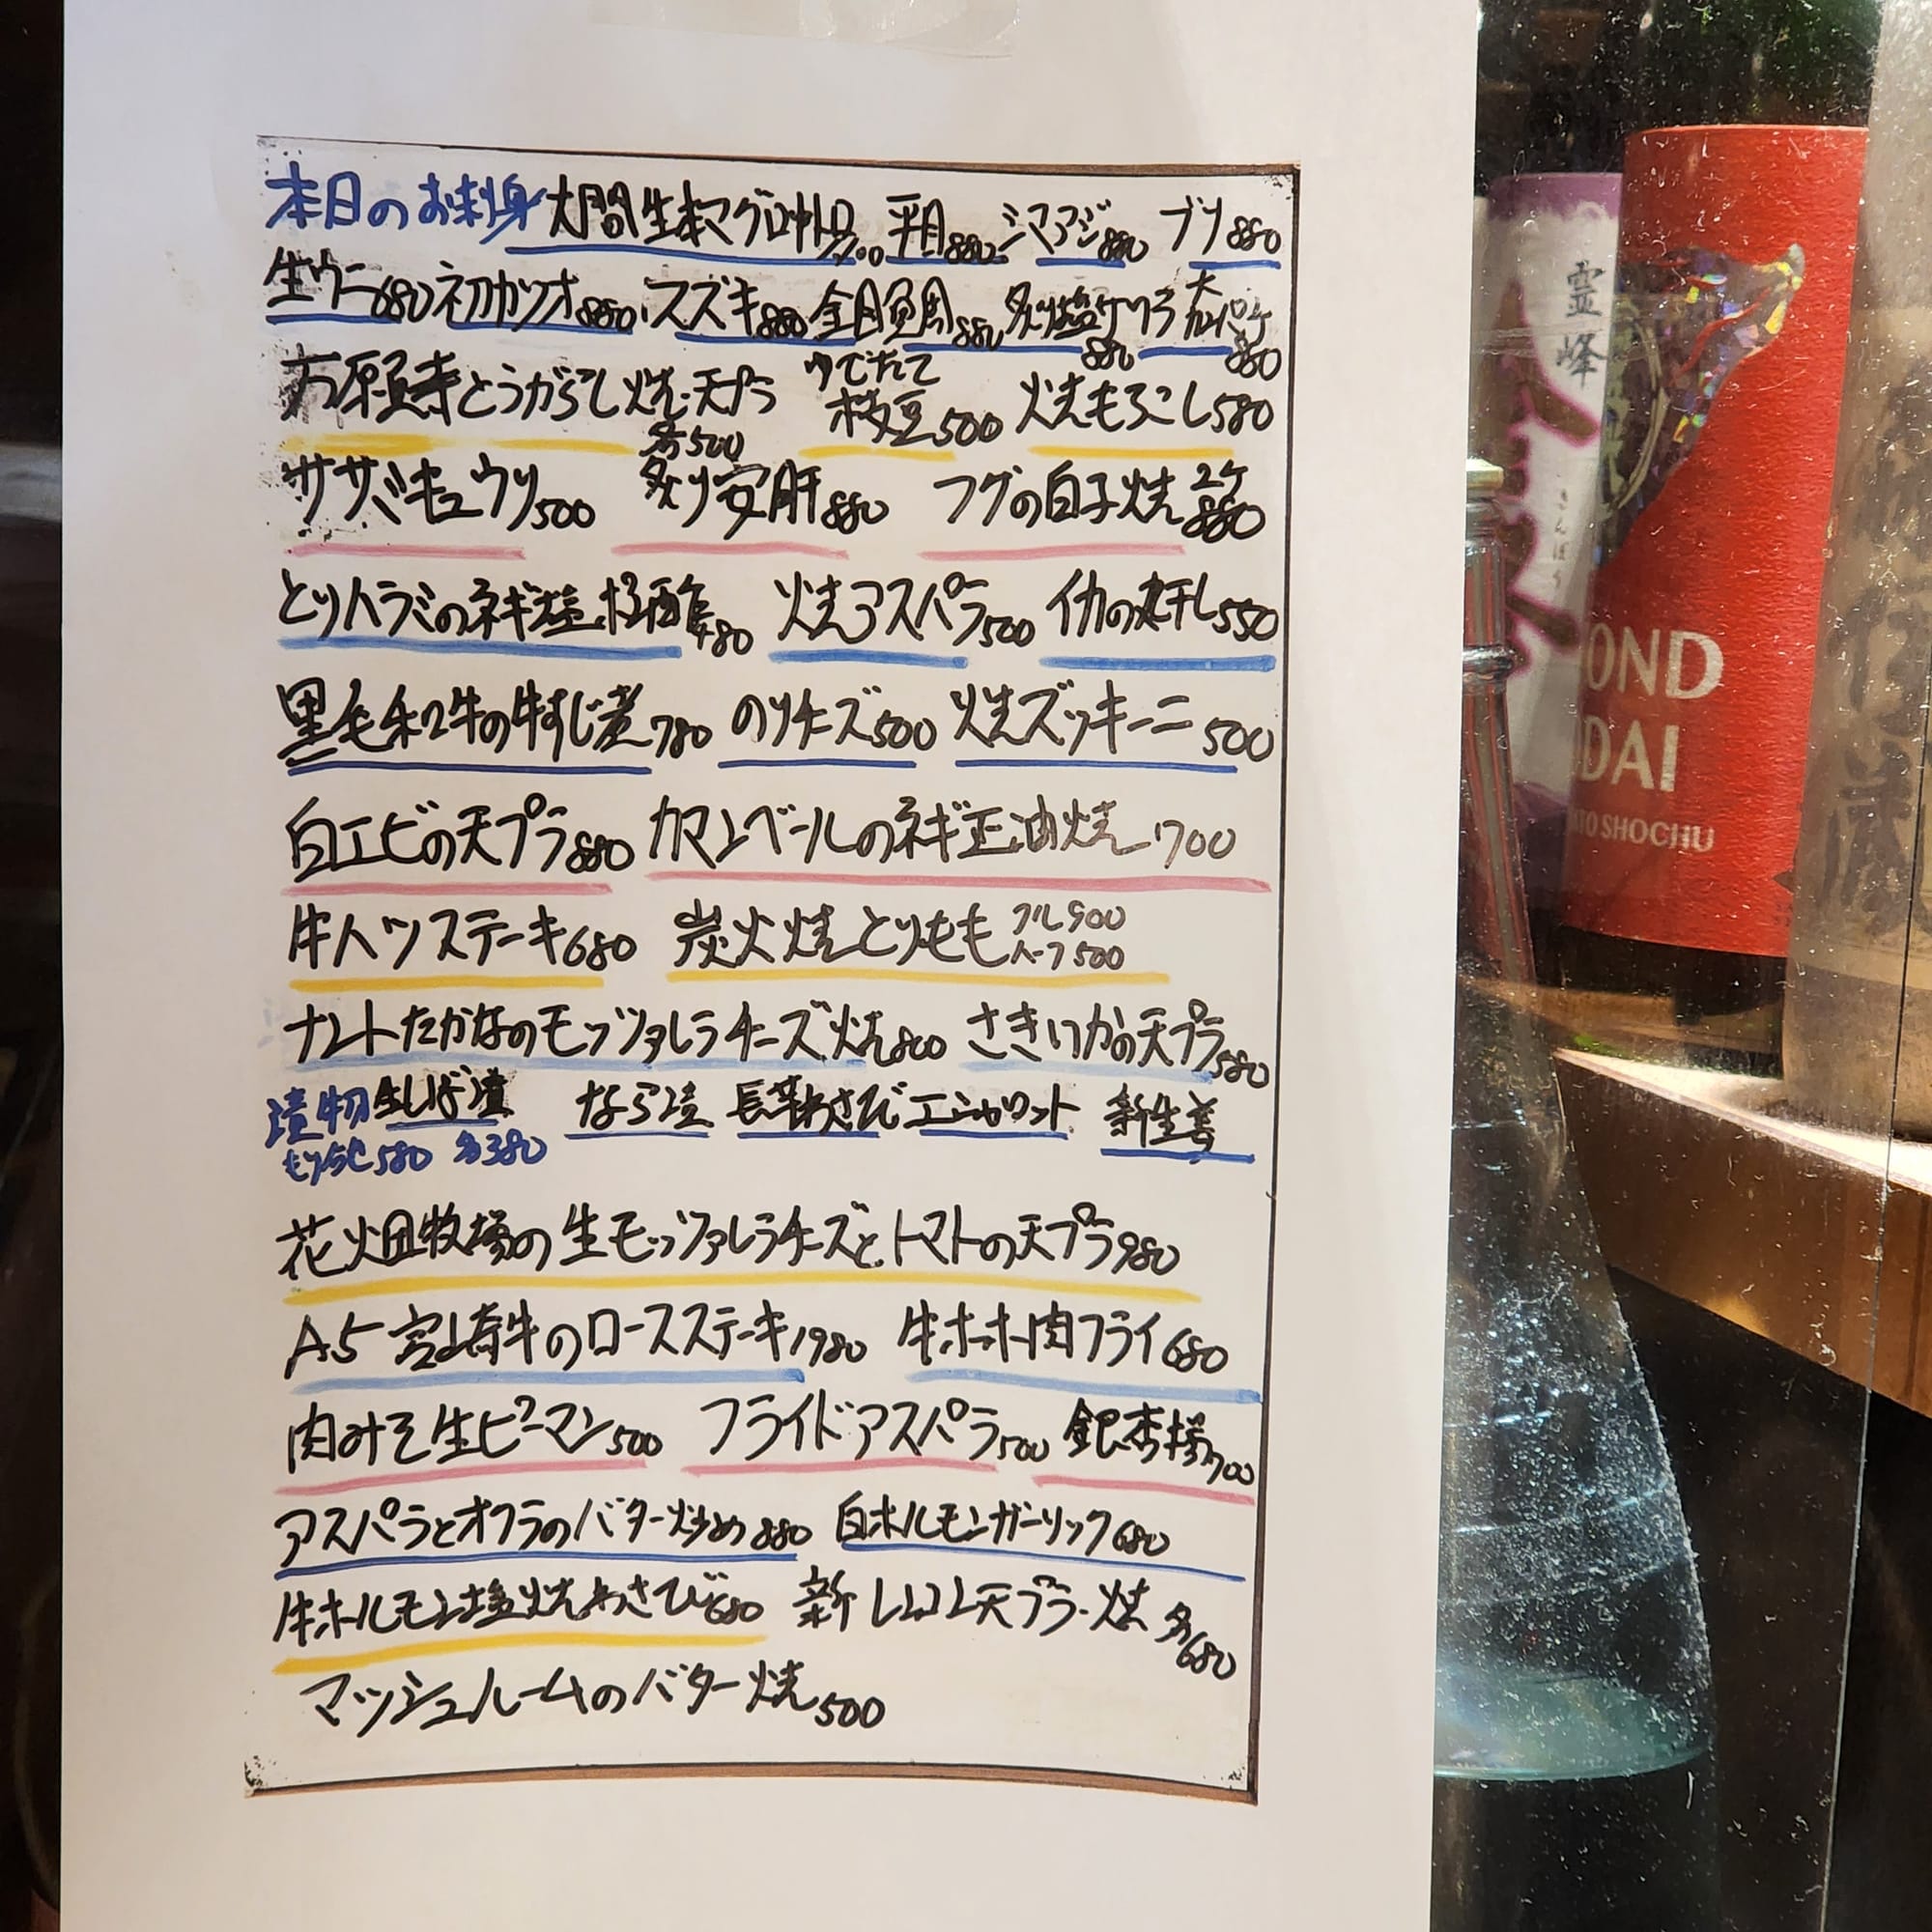 本日のお刺身 大間生本マグロ中トロ 平目880 シマアジ880 ブリ880
生ウニ680 初カツオ880 スズキ880 金目鯛880 炙り塩 880 880
万願寺とうがらし焼・天ぷら 各500 ゆでたて枝豆500 焼もろこし580
サザミキュウリ500 炙り安肝880 フグの白子焼 2ケ880
とりハラミのネギ塩 480 焼アスパラ500 イカの丸干し550
黒毛和牛の牛すじ煮780 のりチーズ500 焼ズッキーニ500
白エビの天プラ880 カマンベールのネギ正油焼700
牛ハツステーキ680 炭火焼とりもも フル900 ハーフ500
ナットたかなのモッツァレラチーズ焼800 さきいかの天プラ580
漬物 生しば漬 なら漬 長芋わさび エシャロット 新生姜
もり合せ580 各380
花畑牧場の生モッツァレラチーズとトマトの天プラ980
A.5 宮崎牛のロースステーキ1980 牛ホホ肉フライ680
肉みそ生ピーマン500 フライドアスパラ500 銀杏揚700
アスパラとオクラのバター炒め880 白ホルモンガーリック680
牛ホルモン塩焼わさび680 新レンコン天プラ・焼 各680
マッシュルームのバター焼500
霊峰
OND
DAI
SHOCHU